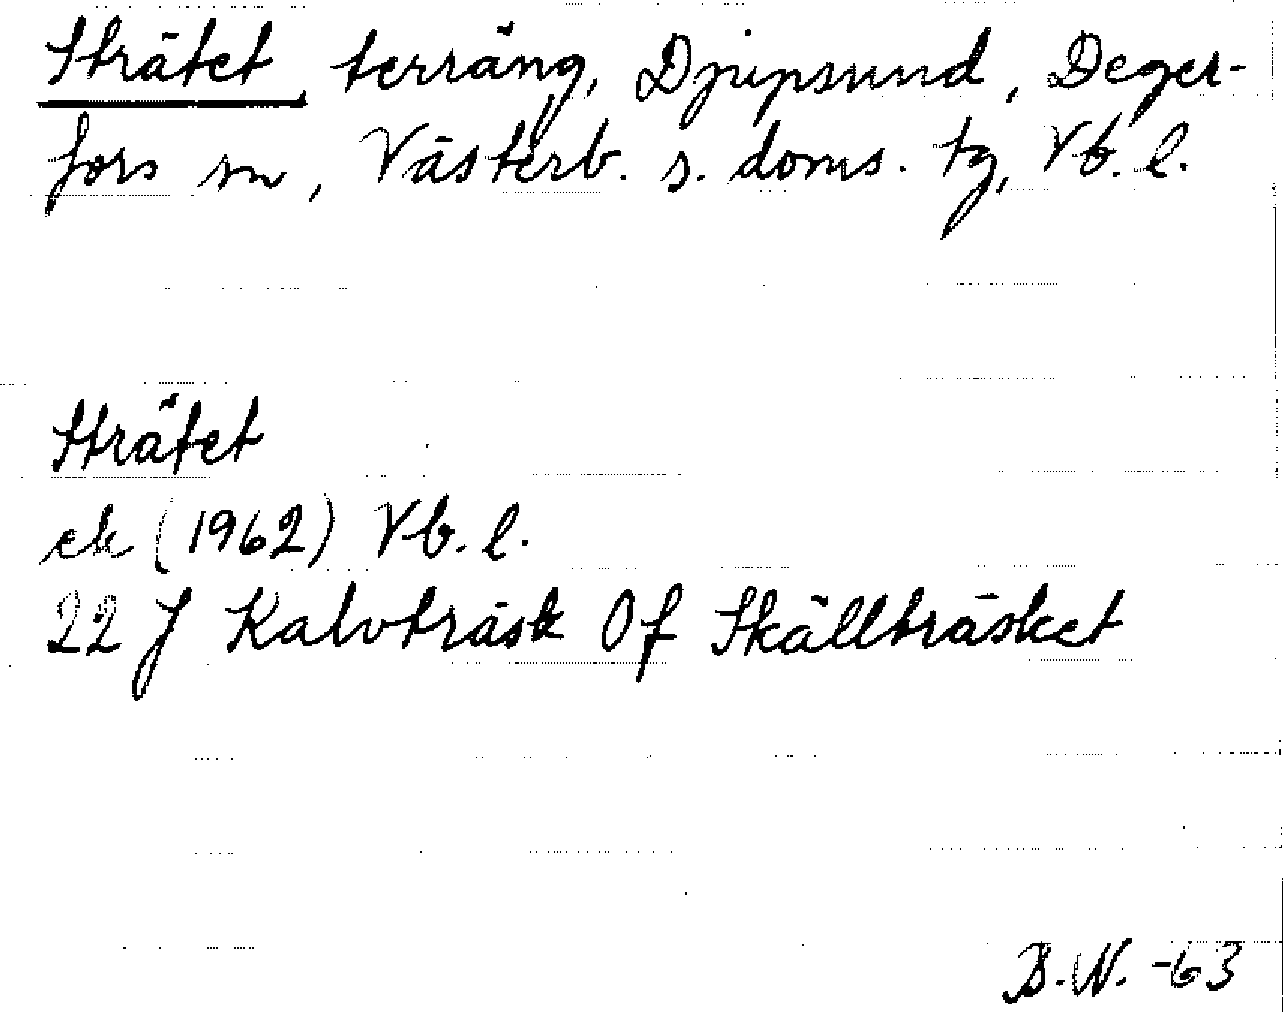 Strätet, terräng, Djupsund, Deger-
fors sn, Västerb. s. doms. tg, Vb. l.
Strätet
ek (1962) Vb. l.
22 J Kalvträsk Of Skällträsket
B.N. -63